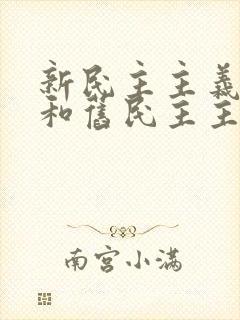 新民主主義
和舊民主主
南宫小满